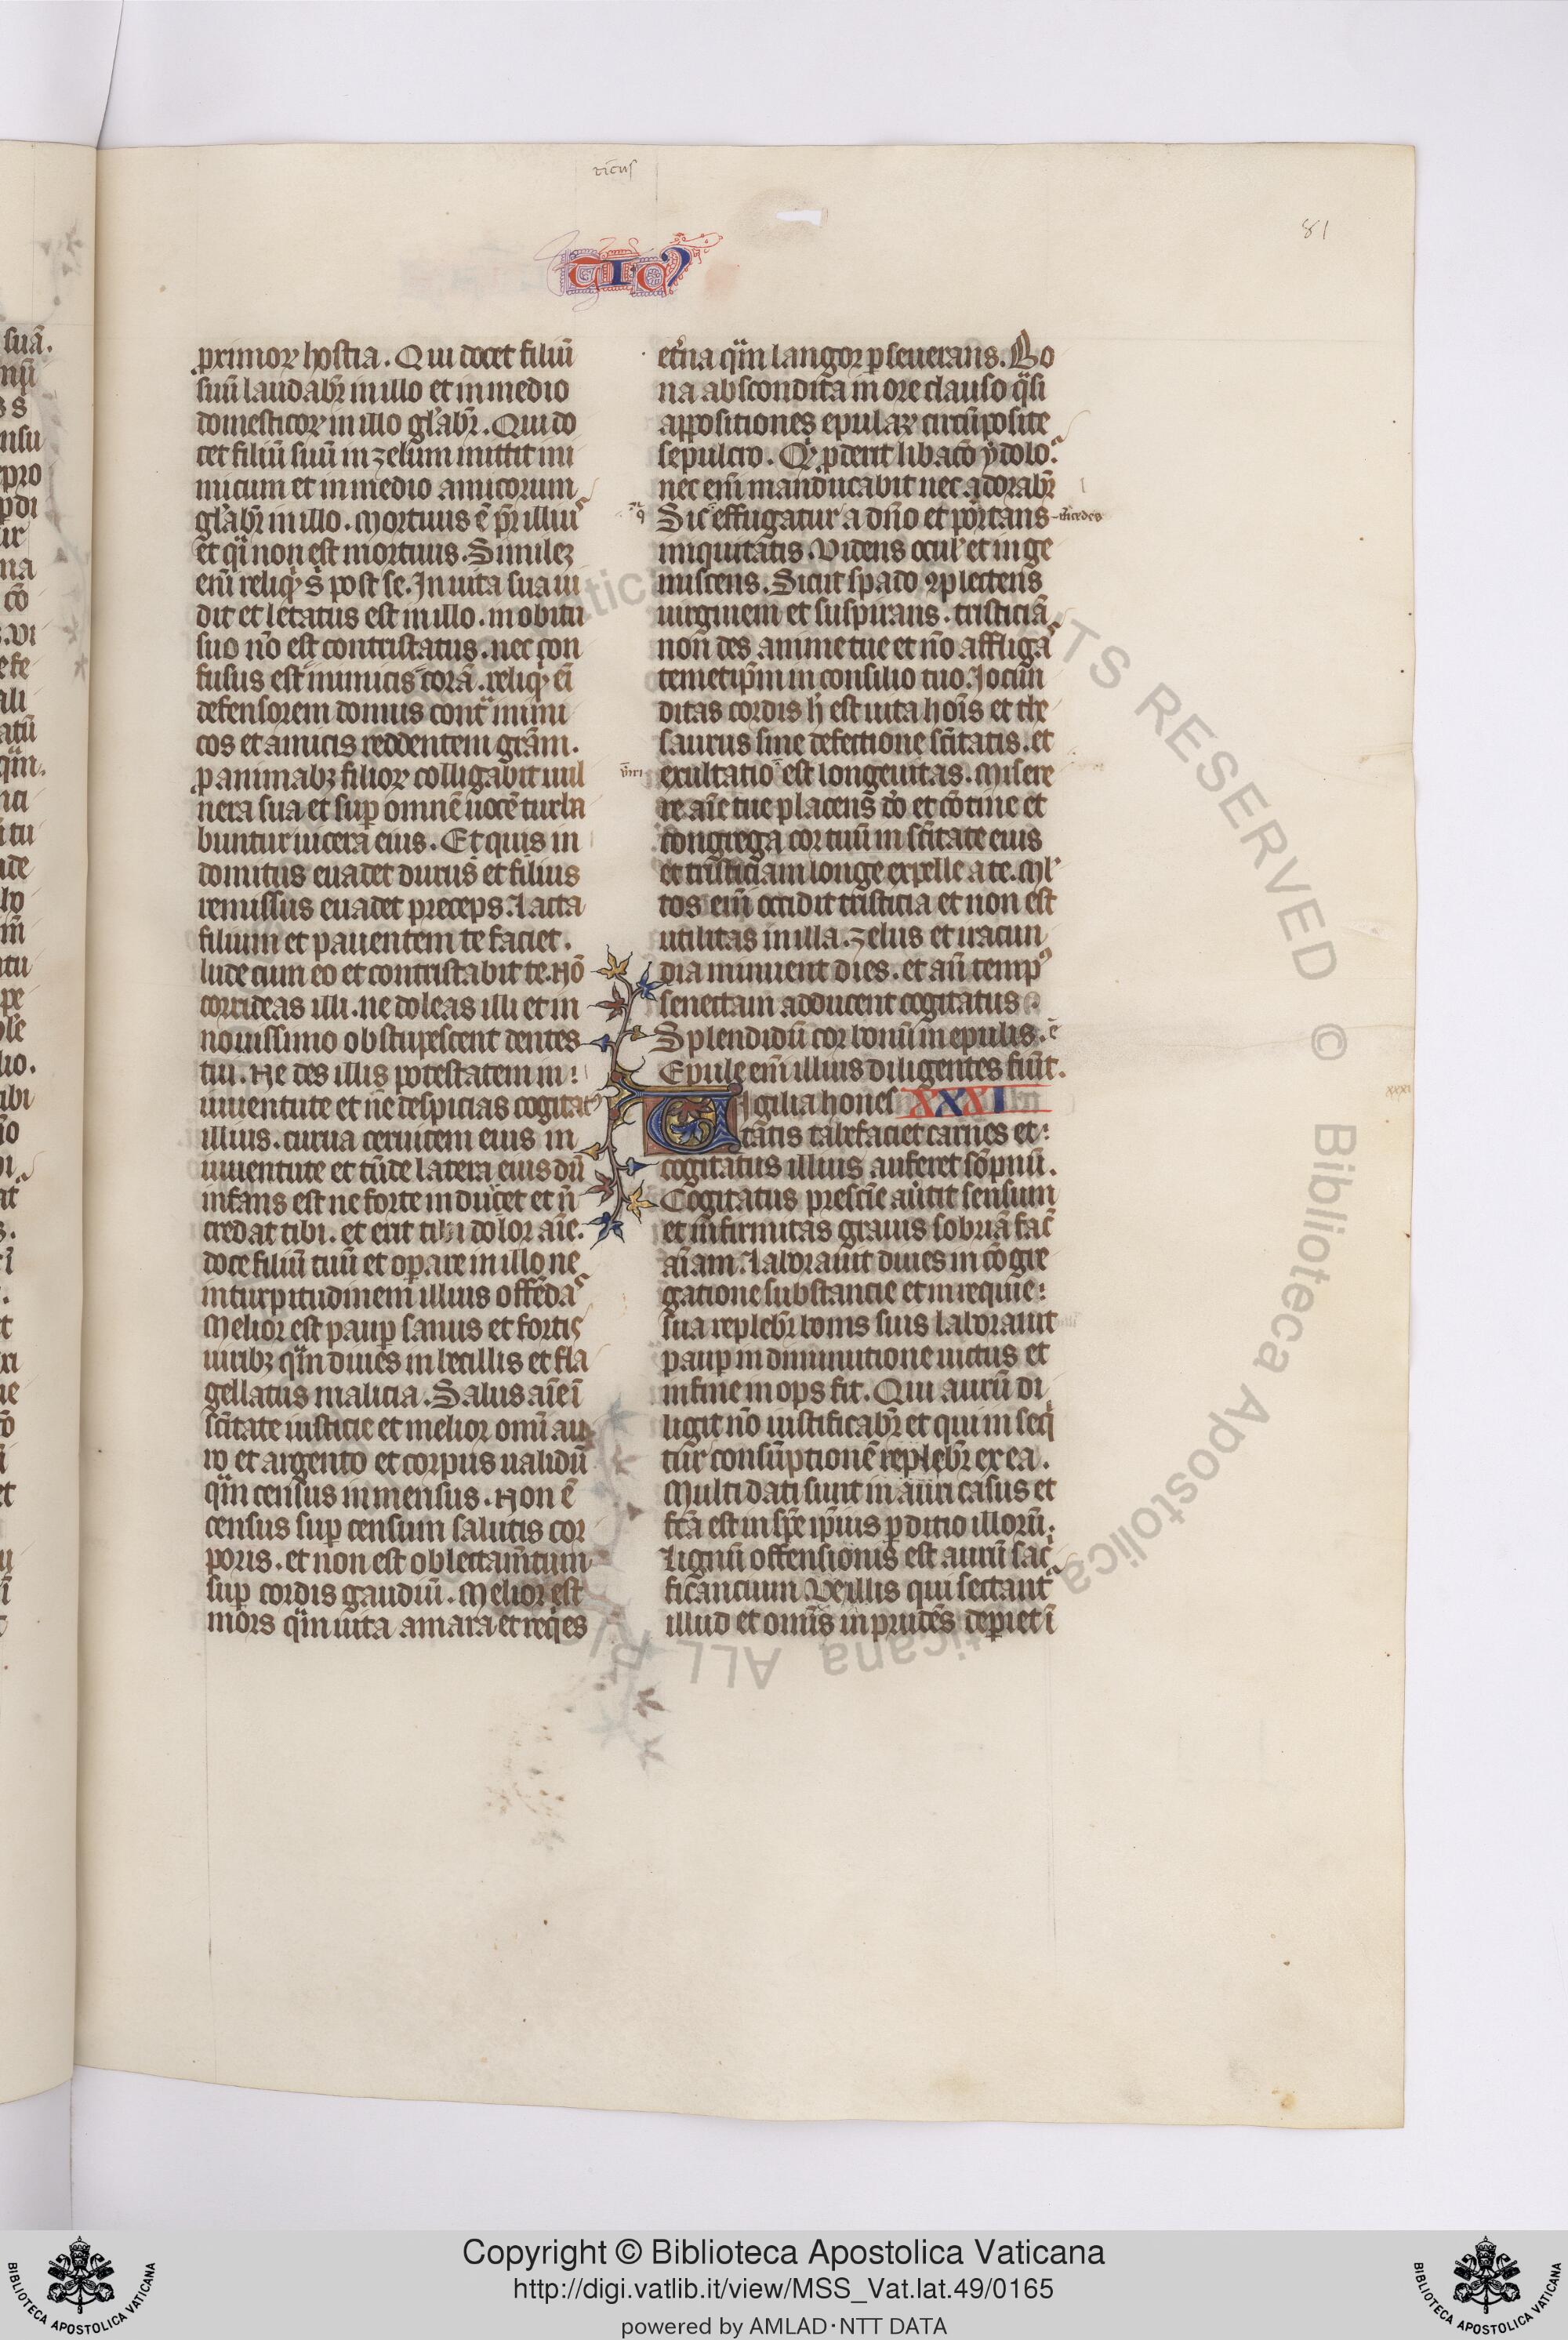 ticus
TICꝰ
81
ꝓximoꝝ hostia. Qui docet filiū
suū laudabit᷑ in illo et in medio
domesticoꝝ in illo gl'abit᷑. Qui do
cet filiū suū in zelum mittit ini
micum et in medio amicorum
gl'abit᷑ in illo. Mortuus ē pr̄ illiuˢ
et q̈i non est mortuus. Similez
enī reliqͥt s᷑ post se. In uita sua ui
dit et letatus est in illo. in obitu
suo nō est contristatus. nec con
fusus est inimicis corā. reliqͥt eī
defensorem domus contᵃ inimi
cos et amicis reddentem grām.
ꝓ animabꝫ filioꝝ colligabit uul
nera sua et suꝑ omnē uocē turba
buntur uicera eius. Et quis in
domitus euadet durus et filius
remissus euadet preceps. Lacta
filium et pauentem te faciet.
lude cum eo et contristabit te. Nō
corrideas illi. ne doleas illi et in
nouissimo obstupescent dentes
tui. Ne des illis potestatem in
iuuentute et ne despicias cogitatꝰ
illius. curua ceruicem eius in
iuuentute et tūde latera eius dū
infans est ne forte induꝛet et n̄
credat tibi. et erit tibi dolor aīe.
doce filiū tuū et oꝑare in illo ne
in turpitudinem illius offēdaˢ
Melior est pauꝑ sanus et fortis
uiribꝫ q̈m diues inbecillis et fla
gellatus malicia. Salus aīe ī
sc̄itate iusticie et melior omī au
ro et argento et corpus ualidū
q̈m census inmensus. Non ē
census suꝑ censum salutis cor
poris. et non est oblectam̄tum
suꝑ cordis gaudiū. Melior est
mors q̈m uita amara et reqͥes
et᷑na q̈m langor ꝑseuerans. Bo
na abscondita in ore clauso q̈si
appositiones epulaꝝ circūposite
sepulcro. Qͥd ꝓderit libacō ydoloˢ
nec enī manducabit nec odorabit᷑
Sic effugatur a dn̄o et portans
mercedes
iniquitatis. Videns ocul' et inge
miscens. Sicut spado ꝯplectens
uirginem et suspirans. tristiciā
non des anime tue et nō affligaˢ
temetip̄m in consilio tuo. Iocun
ditas cordis h̄ est uita hoīs et the
saurus sine defectione sc̄itatis. et
exultatio est longeuitas. Misere
re aīe tue placens d̄o et cōtine et
congrega cor tuū in sc̄itate eius
et tristiciam longe expelle a te. Ml'
tos enī occidit tristicia et non est
utilitas in illa. zelus et iracun
dia minuent dies. et an̄ tempꝰ
senectam adducent cogitatus
Splendidū cor bonū in epulis. ē
Epule enī illius diligentes fiūt.
Uigilia hones XXXI
tatis tabefaciet carnes et
cogitatus illius auferet sōpnū.
Cogitatus prescīe au᷑tit sensum
et infirmitas grauis sobriā fac̄
aīam. Laborauit diues in cōgre
gatione substancie et in requie
sua replebit᷑ bonis suis laborauit
pauꝑ in diminutione uictus et
in fine inops fit. Qui aurū di
ligit nō iustificabit᷑ et qui inseqͥ
tur consūptionē replebit᷑ ex ea.
Multi dati sunt in auri casus et
fc̄a est in spē ip̄ius ꝑditio illorū.
Lignū offensionis est aurū sac̄ˢ
ficantium. Ve illis qui sectantˢ
illud et omīs inprudēs deꝑiet ī
XXXI
Copyright © Biblioteca Apostolica Vaticana
http://digi.vatlib.it/view/MSS_Vat.lat.49/0165
powered by AMLAD·NTT DATA
BIBLIOTECA APOSTOLICA VATICANA
BIBLIOTECA APOSTOLICA VATICANA